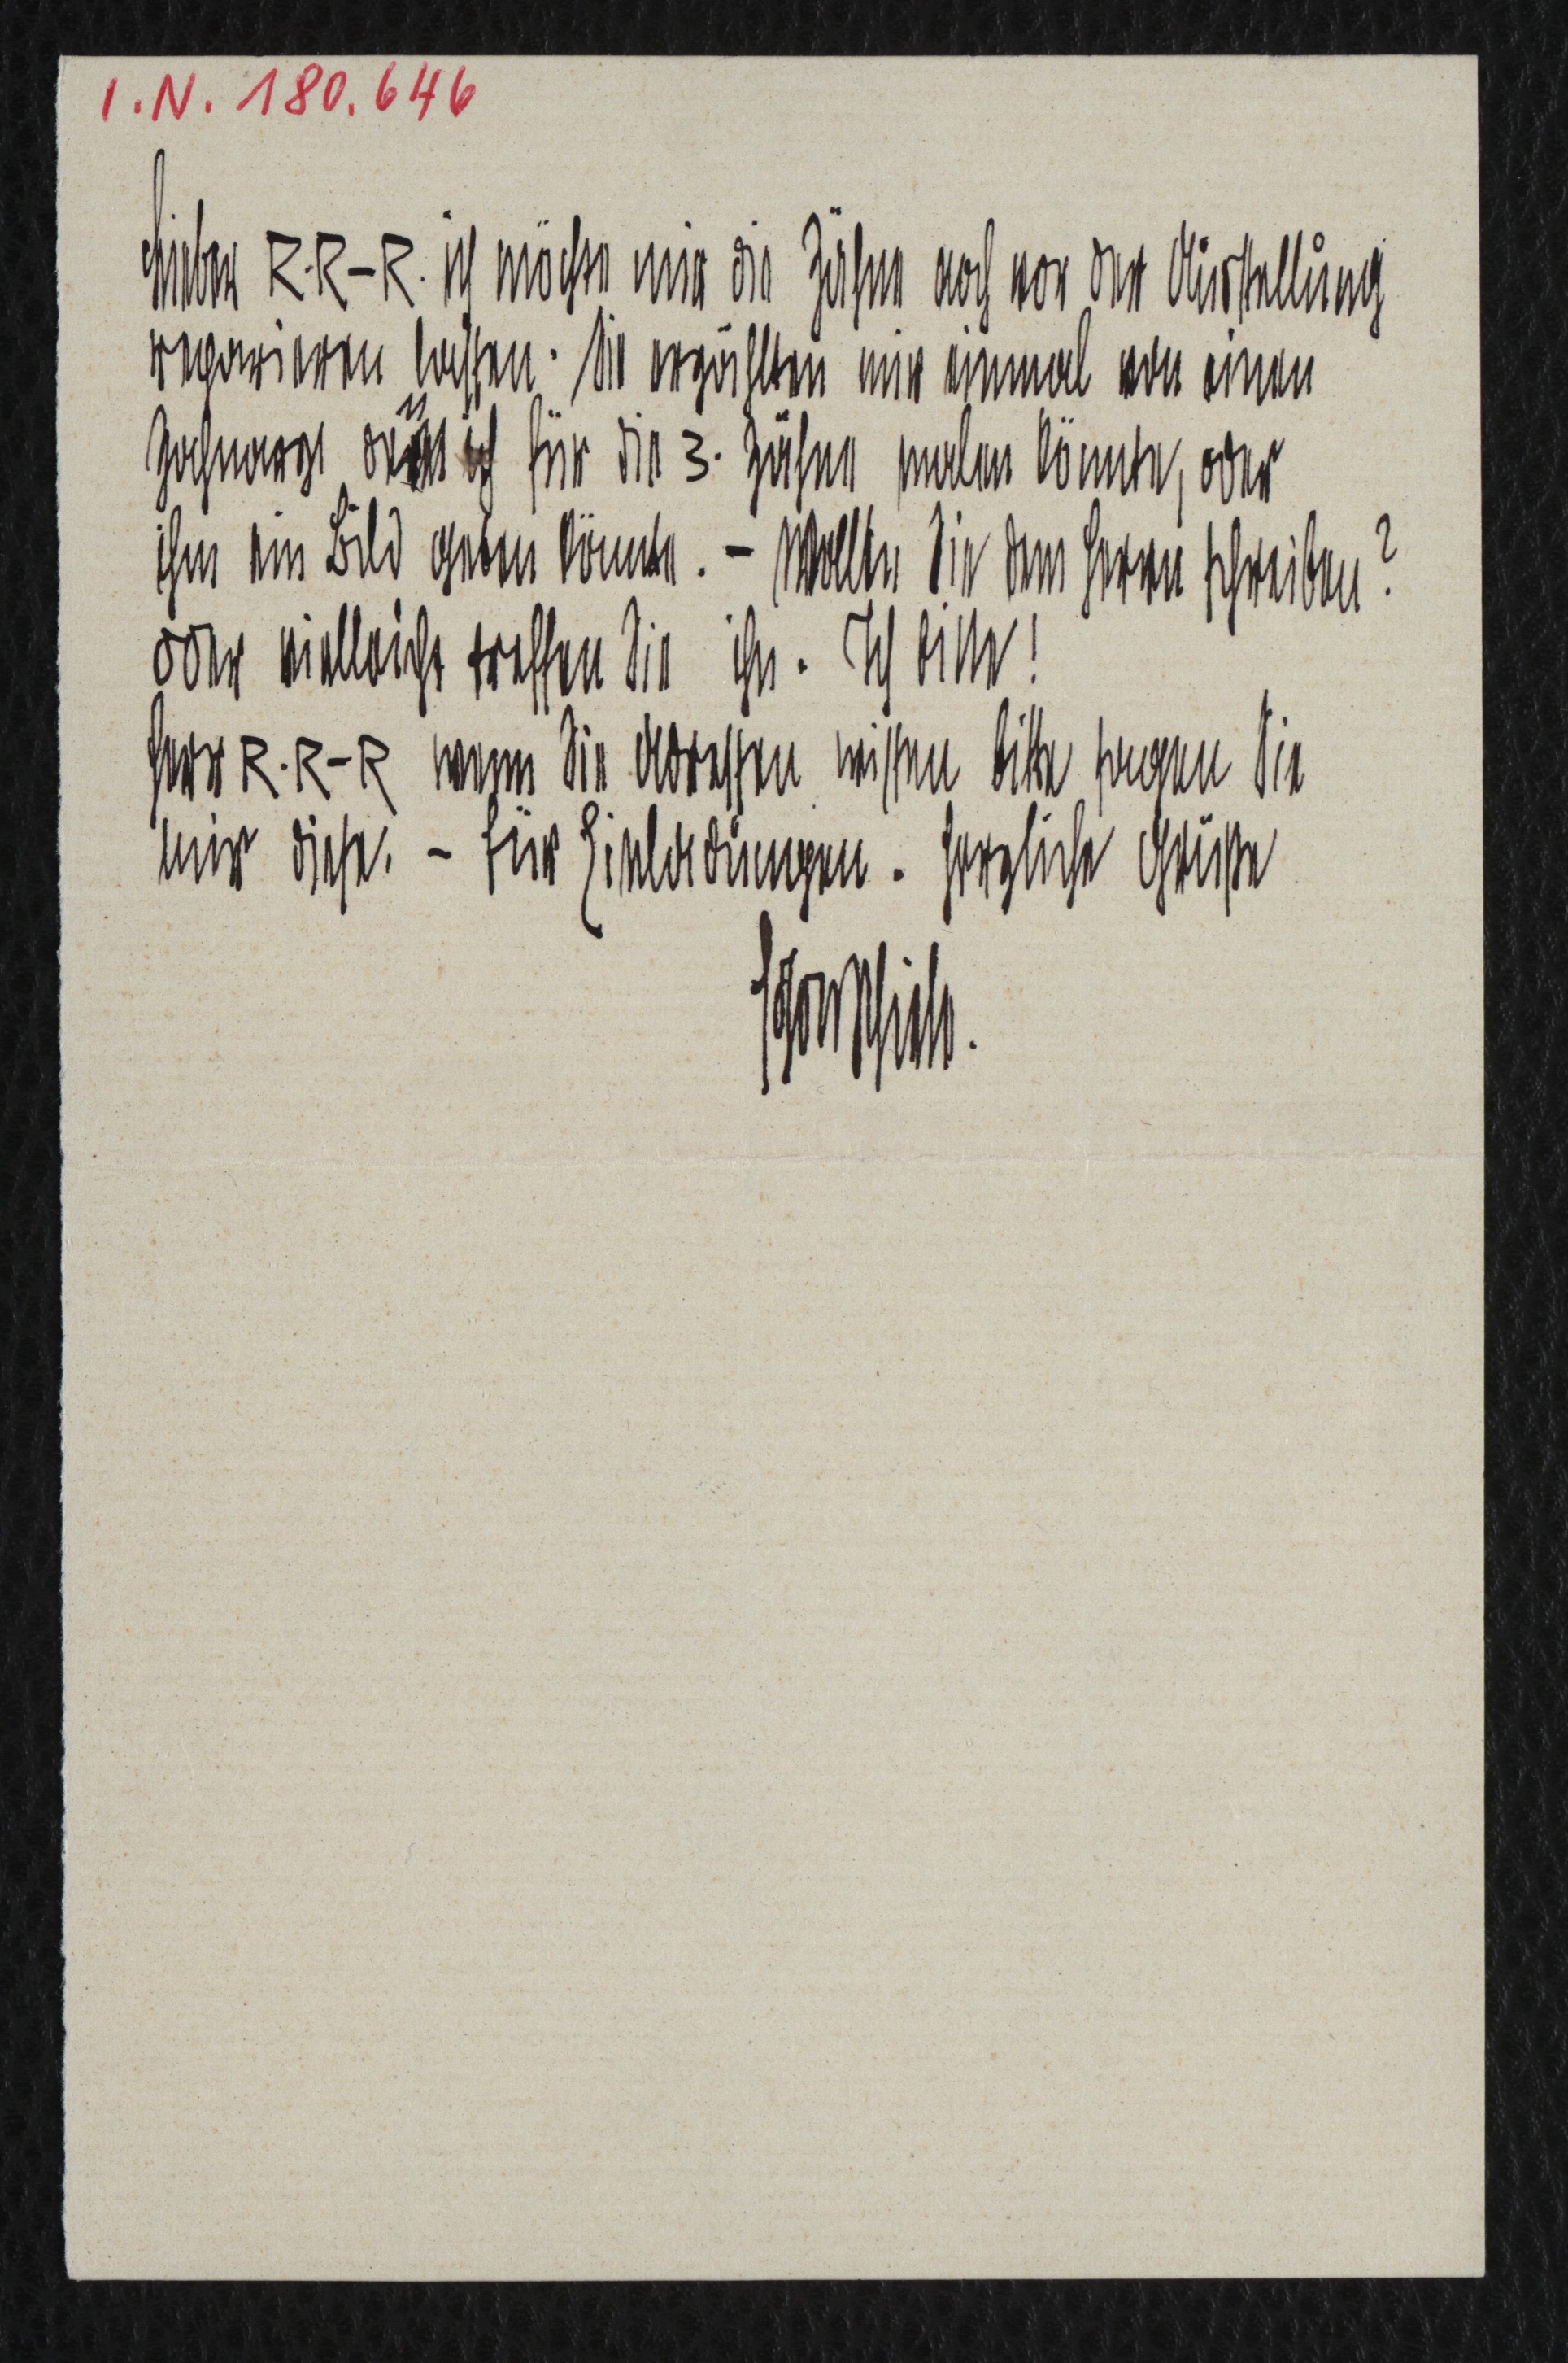 I.N. 180.646
Lieber R.R-R. ich möchte mir die Zähne noch vor der Ausstellung
reparieren lassen. Sie erzählten mir einmal von einen
Zahnarzt den ich für die 3. Zähne malen könnte, oder
ihm ein Bild geben könnte. – Wollen Sie dem Herrn schreiben?
oder vielleicht treffen Sie ihn. Ich bitte!
Herr R.R-R wenn Sie Adressen wissen bitte sagen Sie
mir diese. – für Einladungen. Herzliche Grüße
Egon Schiele.